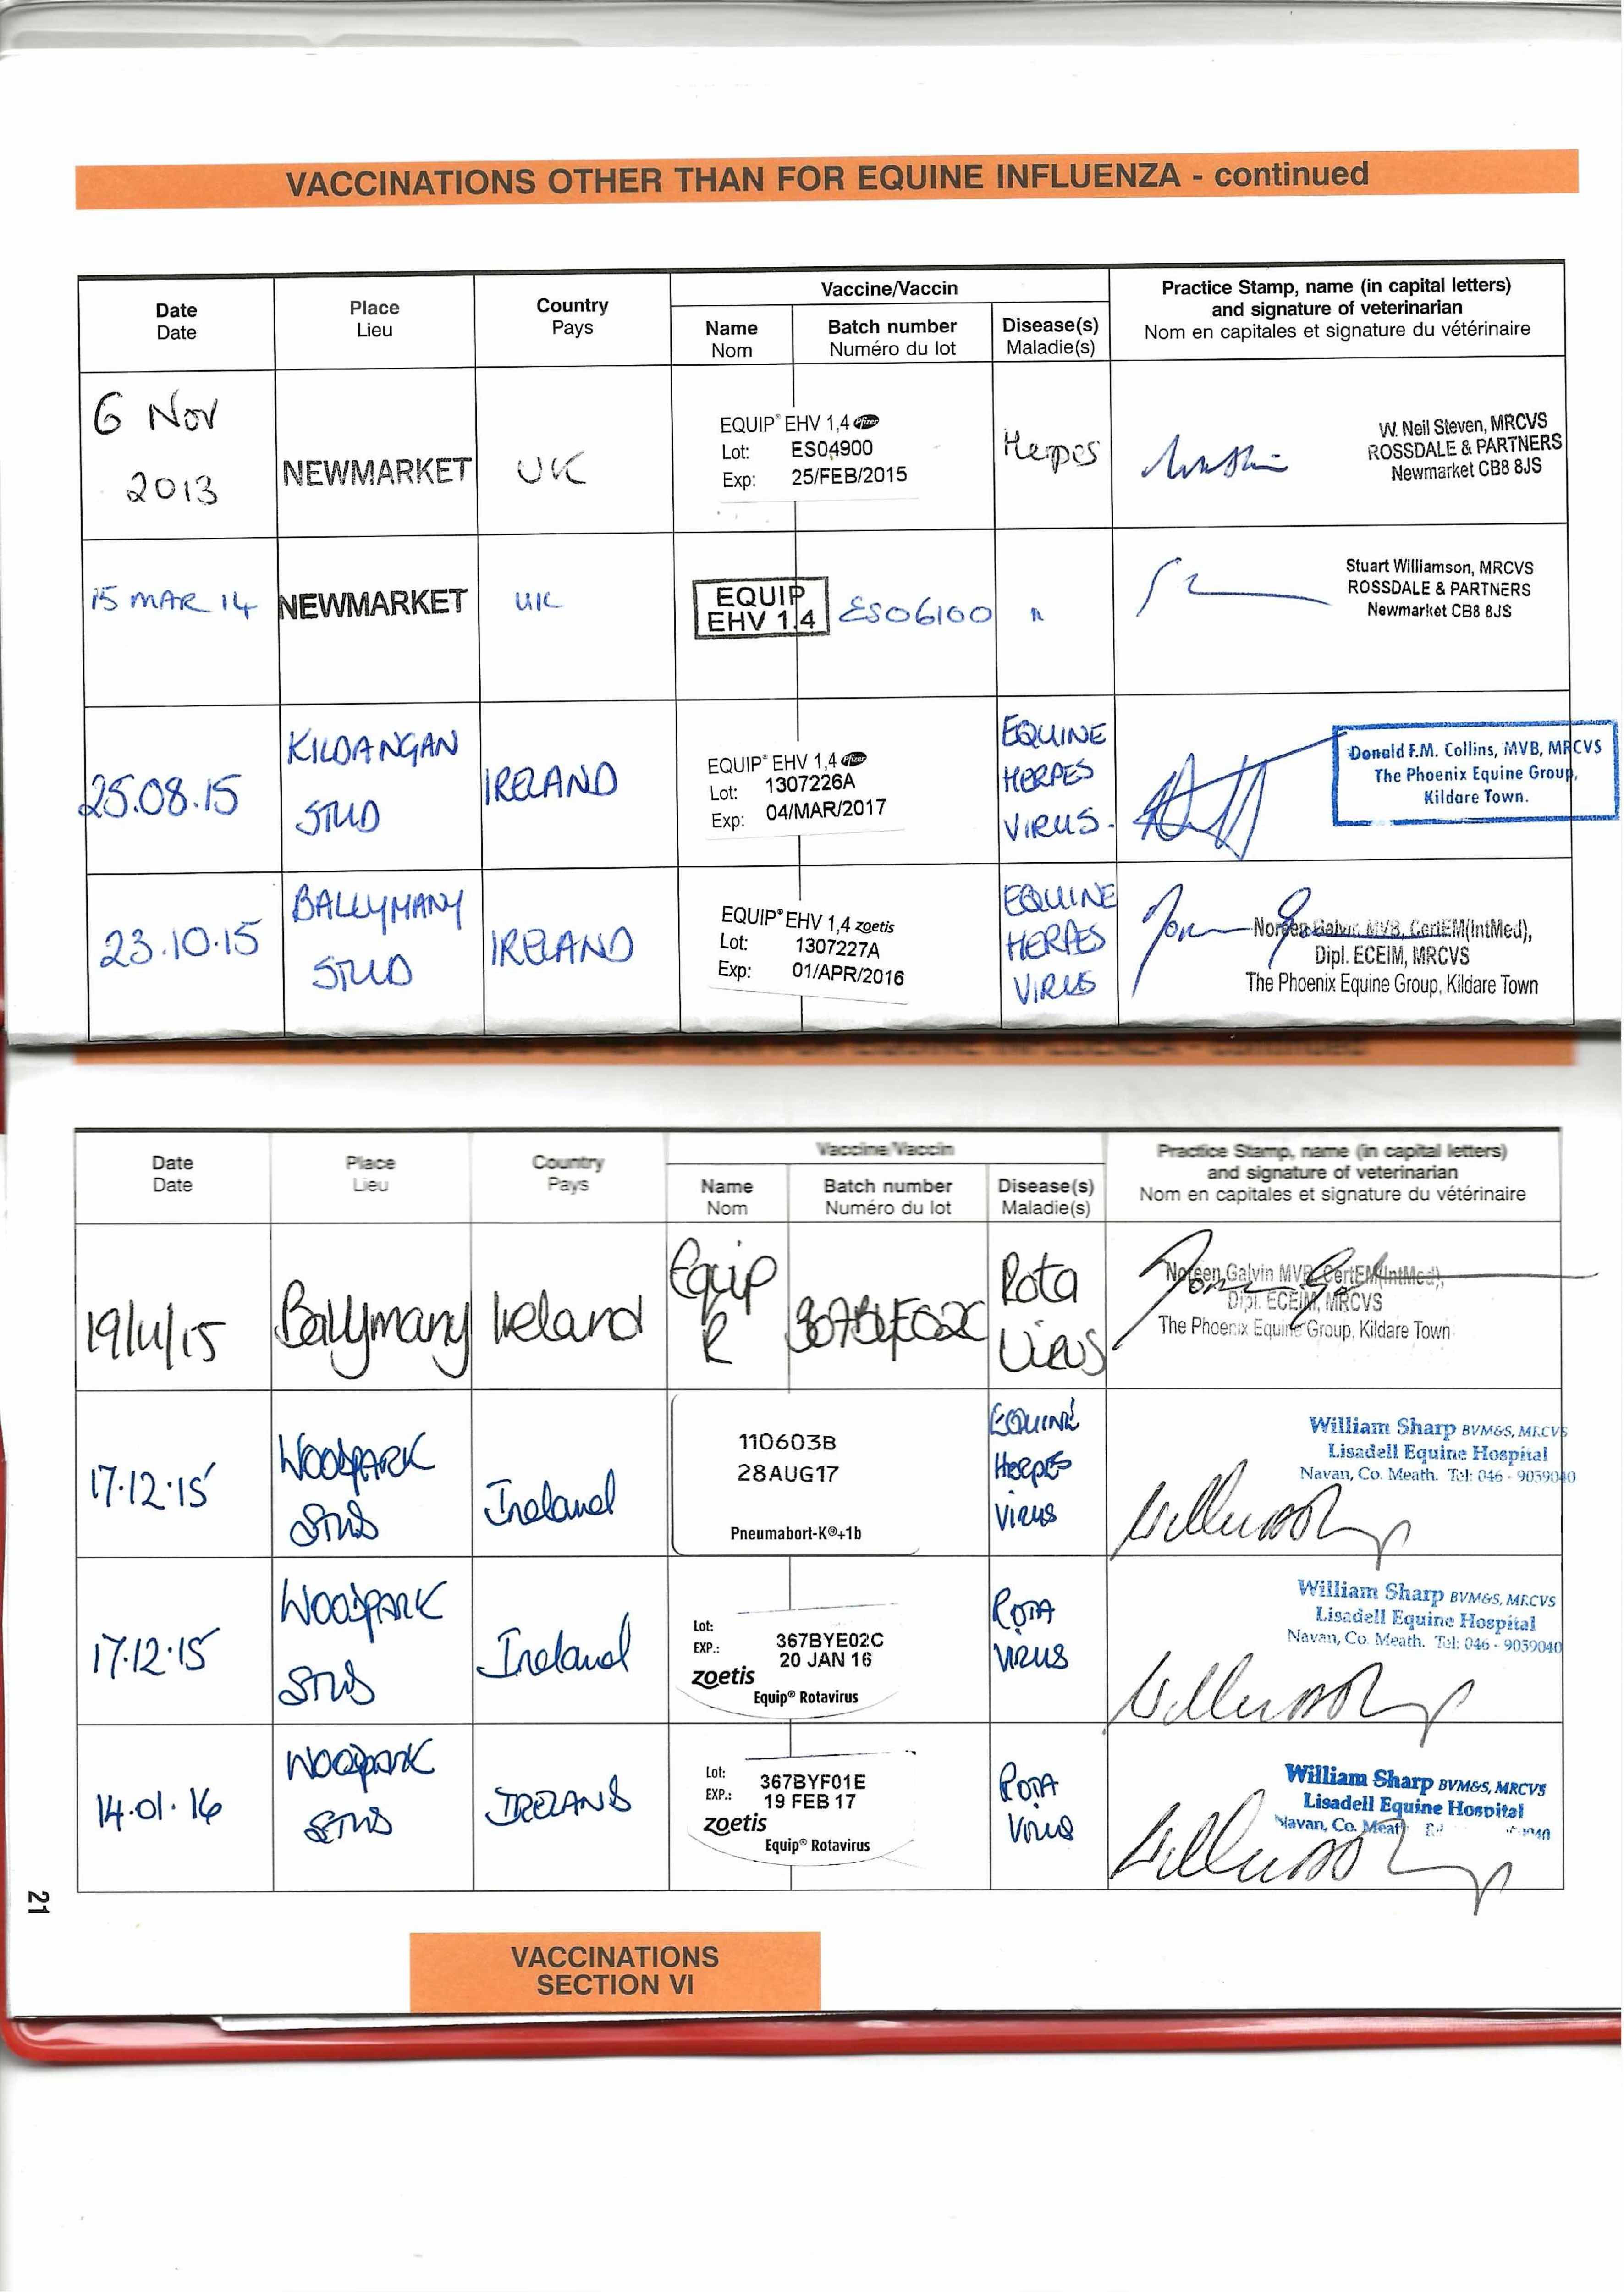 VACCINATIONS OTHER THAN FOR EQUINE INFLUENZA - continued
Date
Date
Place
Lieu
Country
Pays
Vaccine/Vaccin
Name
Nom
Batch number
Numéro du lot
Disease(s)
Maladie(s)
Practice Stamp, name (in capital letters)
and signature of veterinarian
Nom en capitales et signature du vétérinaire
6 Nov
2013
NEWMARKET
UK
EQUIP® EHV 1,4 Pfizer
Lot: ES04900
Exp: 25/FEB/2015
Herpes
W. Neil Steven, MRCVS
ROSSDALE & PARTNERS
Newmarket CB8 8JS
15 MAR 14
NEWMARKET
UK
EQUIP
EHV 1,4
ES06100
Stuart Williamson, MRCVS
ROSSDALE & PARTNERS
Newmarket CB8 8JS
25.08.15
KILDANGAN
STUD
IRELAND
EQUIP® EHV 1,4 Pfizer
Lot: 1307226A
Exp: 04/MAR/2017
EQUINE
HERPES
VIRUS.
Donald F.M. Collins, MVB, MRCVS
The Phoenix Equine Group,
Kildare Town.
23.10.15
BALLYMANY
STUD
IRELAND
EQUIP® EHV 1,4 zoetis
Lot: 1307227A
Exp: 01/APR/2016
EQUINE
HERPES
VIRUS
Noreen Galvin MVB, CertEM(IntMed),
Dipl. ECEIM, MRCVS
The Phoenix Equine Group, Kildare Town
Date
Date
Place
Lieu
Country
Pays
Vaccine/Vaccin
Name
Nom
Batch number
Numéro du lot
Disease(s)
Maladie(s)
Practice Stamp, name (in capital letters)
and signature of veterinarian
Nom en capitales et signature du vétérinaire
19/11/15
Ballymany
Ireland
Equip
R
Rota
Virus
Noreen Galvin MVB, CertEM(IntMed),
Dipl. ECEIM, MRCVS
The Phoenix Equine Group, Kildare Town
17.12.15
WOODPARK
STUD
Ireland
110603B
28AUG17
Pneumabort-K®+1b
EQUINE
HERPES
VIRUS
William Sharp BVM&S, MRCVS
Lisadell Equine Hospital
Navan, Co. Meath. Tel: 046 - 9059040
17.12.15
WOODPARK
STUD
Ireland
Lot: 367BYE02C
EXP.: 20 JAN 16
zoetis
Equip® Rotavirus
ROTA
VIRUS
William Sharp BVM&S, MRCVS
Lisadell Equine Hospital
Navan, Co. Meath. Tel: 046 - 9059040
14.01.16
WOODPARK
STUD
IRELAND
Lot: 367BYF01E
EXP.: 19 FEB 17
zoetis
Equip® Rotavirus
ROTA
Virus
William Sharp BVM&S, MRCVS
Lisadell Equine Hospital
Navan, Co. Meath
21
VACCINATIONS
SECTION VI